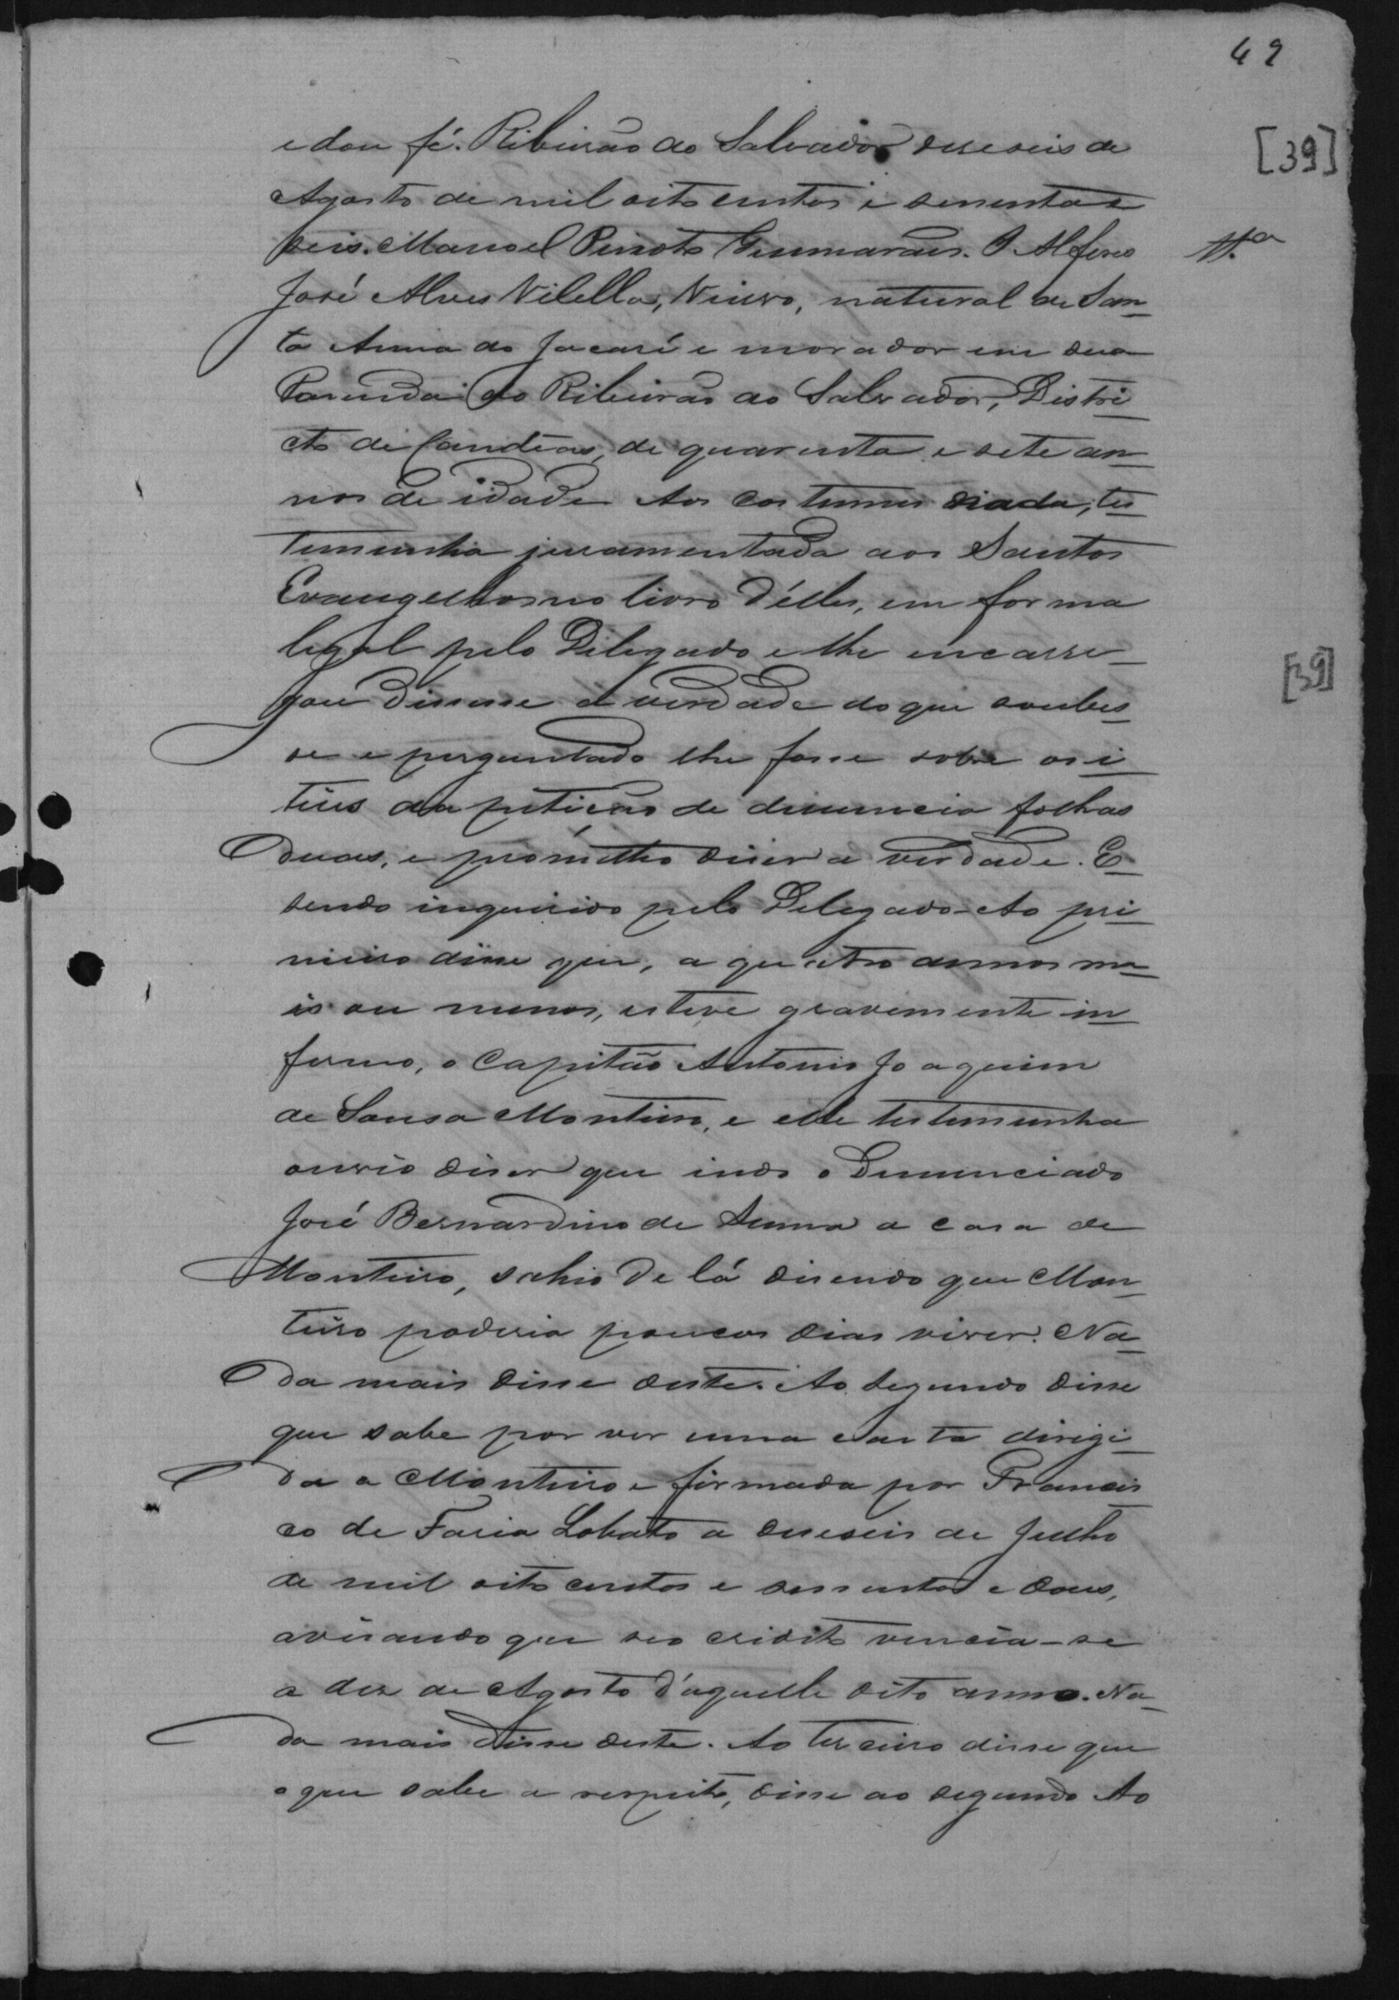 42
[39]
e dou fé. Ribeirão do Salvador deseseis de
Agosto de mil oito centos e sessenta e
seis. Manoel Peixoto Guimarães. O Alferes
11.a
José Alves Vilella, Viuvo, natural de San-
ta Anna do Jacaré e morador em sua
Fasenda do Ribeirão do Salvador, Distri-
cto de Candeas, de quarenta e sete an-
nos de idade Aos costumes nada, tes-
temunha juramentada aos Santos
Evangelhos no livro d'élles, em forma
legal pelo Delegado e lhe encarre-
[39]
gou disesse a verdade do que soubes-
se e perguntado lhe fosse sobre os i-
teĩs da petição de denuncia folhas
duas, e prometteo diser a verdade. E
sendo inquirido pelo Delegado - Ao pri-
meiro disse que, a quatro annos ma-
is ou menos, esteve gravemente in-
fermo, o Capitão Antonio Joaquim
de Sousa Monteiro, e elle testemunha
ouvio diser que indo o Denunciado
José Bernardino de Senna a casa de
Monteiro, sahio de lá disendo que Mon-
teiro poderia poucos dias viver. Na-
da mais disse deste. Ao segundo disse
que sabe por ver uma carta dirigi-
da a Monteiro e firmada por Francis
co de Faria Lobato a deseseis de Julho
de mil oito centos e sessenta e dous,
avisando que seo credito vencia-se
a dez de Agosto d'aquelle dito anno. Na-
da mais disse deste. Ao terceiro disse que
o que sabe a respeito, disse ao segundo Ao